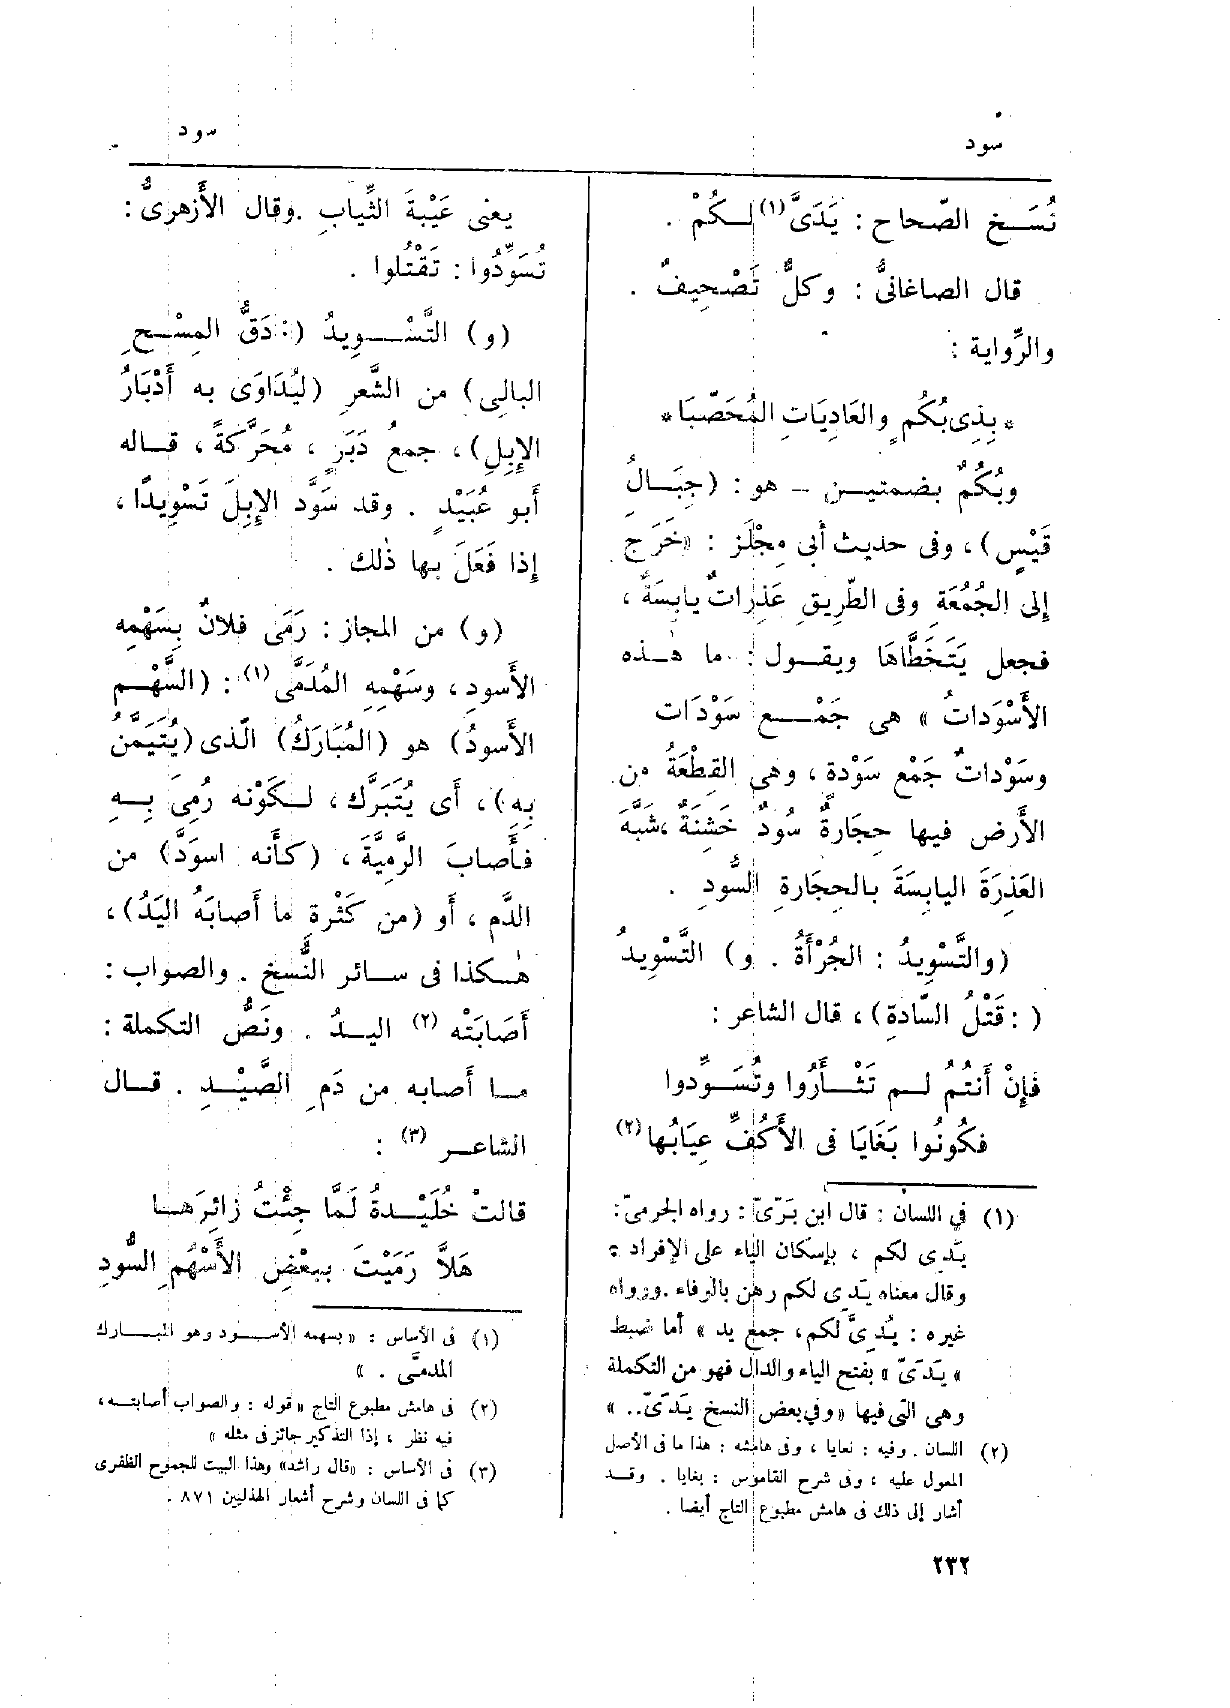 سود
سود
نُسَخ الصّحاح : يَدَىَّ (١) لَكُمْ .
قال الصاغانىُّ : وكلٌّ تَصْحِيفٌ .
والرِّواية :
* بِذِى بُكُمٍ والعَادِيَاتِ المُحَصَّبَا *
وبُكُمٌ بضمتين – هو : (جِبَالُ
قَيْسٍ) ، وفى حديث أبى مِجْلَز : «خَرَج
إلى الجُمُعَةِ وفى الطَّرِيقِ عَذِرَاتٌ يابِسَةٌ ،
فجعل يَتَخَطَّاهَا ويقول : ما هٰذه
الأَسْوَدَاتُ » هى جَمْع سَوْدَات
وسَوْدَاتٌ جَمْع سَوْدةٍ ، وهى القِطْعَةُ من
الأَرض فيها حِجَارةٌ سُودٌ خَشِنَةٌ ، شَبَّهَ
العَذِرَةَ اليابِسَةَ بالحِجَارةِ السُّودِ .
(والتَّسْوِيدُ : الجُرْأَةُ . و) التَّسْوِيدُ
( : قَتْلُ السّادة) ، قال الشاعر :
فإِنْ أَنتُمُ لم تَثْأَرُوا وتُسَوِّدوا
فكُونُوا بَغَايَا فى الأَكُفِّ عِيَابُها (٢)
(١) فى اللسان : قال ابن بَرّىّ : رواه الجرمىّ :
يَدِى لكم ، بإسكان الياء على الإفراد ،
وقال معناه يَدِى لكم رهن بالوفاء . ورواه
غيره : يُدِىَّ لكم ، جمع يد » أما ضبط
« يَدَىّ » بفتح الياء والدال فهو من التكملة
وهى التى فيها «وفى بعض النسخ يَدَىّ .. »
(٢) اللسان . وفيه : نعايا ، وفى هامشه : هذا ما فى الأصل
المعول عليه ، وفى شرح القاموس : بغايا . وقد
أشار إلى ذلك فى هامش مطبوع التاج أيضا .
يعنى عَيْبَةَ الثِّياب . وقال الأَزهرىُّ :
تُسَوِّدُوا : تَقْتُلوا .
(و) التَّسْوِيدُ ( : دَقُّ المِسْحِ
البالِى) من الشَّعرِ (ليُدَاوَى به أَدْبَارُ
الإِبِلِ) ، جمعُ دَبَرٍ ، مُحَرَّكَةً ، قاله
أَبو عُبَيْدٍ . وقد سَوَّد الإِبِلَ تَسْوِيدًا ،
إِذا فَعَلَ بها ذٰلك .
(و) من المجاز : رَمَى فلانٌ بِسَهْمِهِ
الأَسودِ ، وسَهْمِهِ المُدَمَّى (١) : (السَّهْم
الأَسودُ) هو (المُبَارَكُ) الّذى (يُتَيَمَّنُ
بِهِ) ، أَى يُتَبَرَّك ، لكَوْنه رُمِىَ بِهِ
فأَصابَ الرَّمِيَّةَ ، (كأَنه اسوَدَّ) من
الدَّم ، أَو (من كَثْرةِ ما أَصابَهُ اليَدُ) ،
هٰكذا فى سائر النُّسخ . والصواب :
أَصَابَتْه (٢) اليدُ . ونَصُّ التكملة :
ما أَصابه من دَمِ الصَّيْدِ . قال
الشاعر (٣) :
قالتْ خُلَيْدةُ لَمَّا جِئْتُ زائرَها
هَلاَّ رَمَيْتَ ببعْضِ الأَسْهُمِ السُّودِ
(١) فى الأساس : « بسهمه الأسود وهو المبارك
المدمَّى . »
(٢) فى هامش مطبوع التاج «قوله : والصواب أصابته ،
فيه نظر ، إذا التذكير جائز فى مثله »
(٣) فى الأساس : «قال راشد» وهذا البيت للجموح الظفرى
كما فى اللسان وشرح أشعار الهذليين ٨٧١ .
٢٣٢